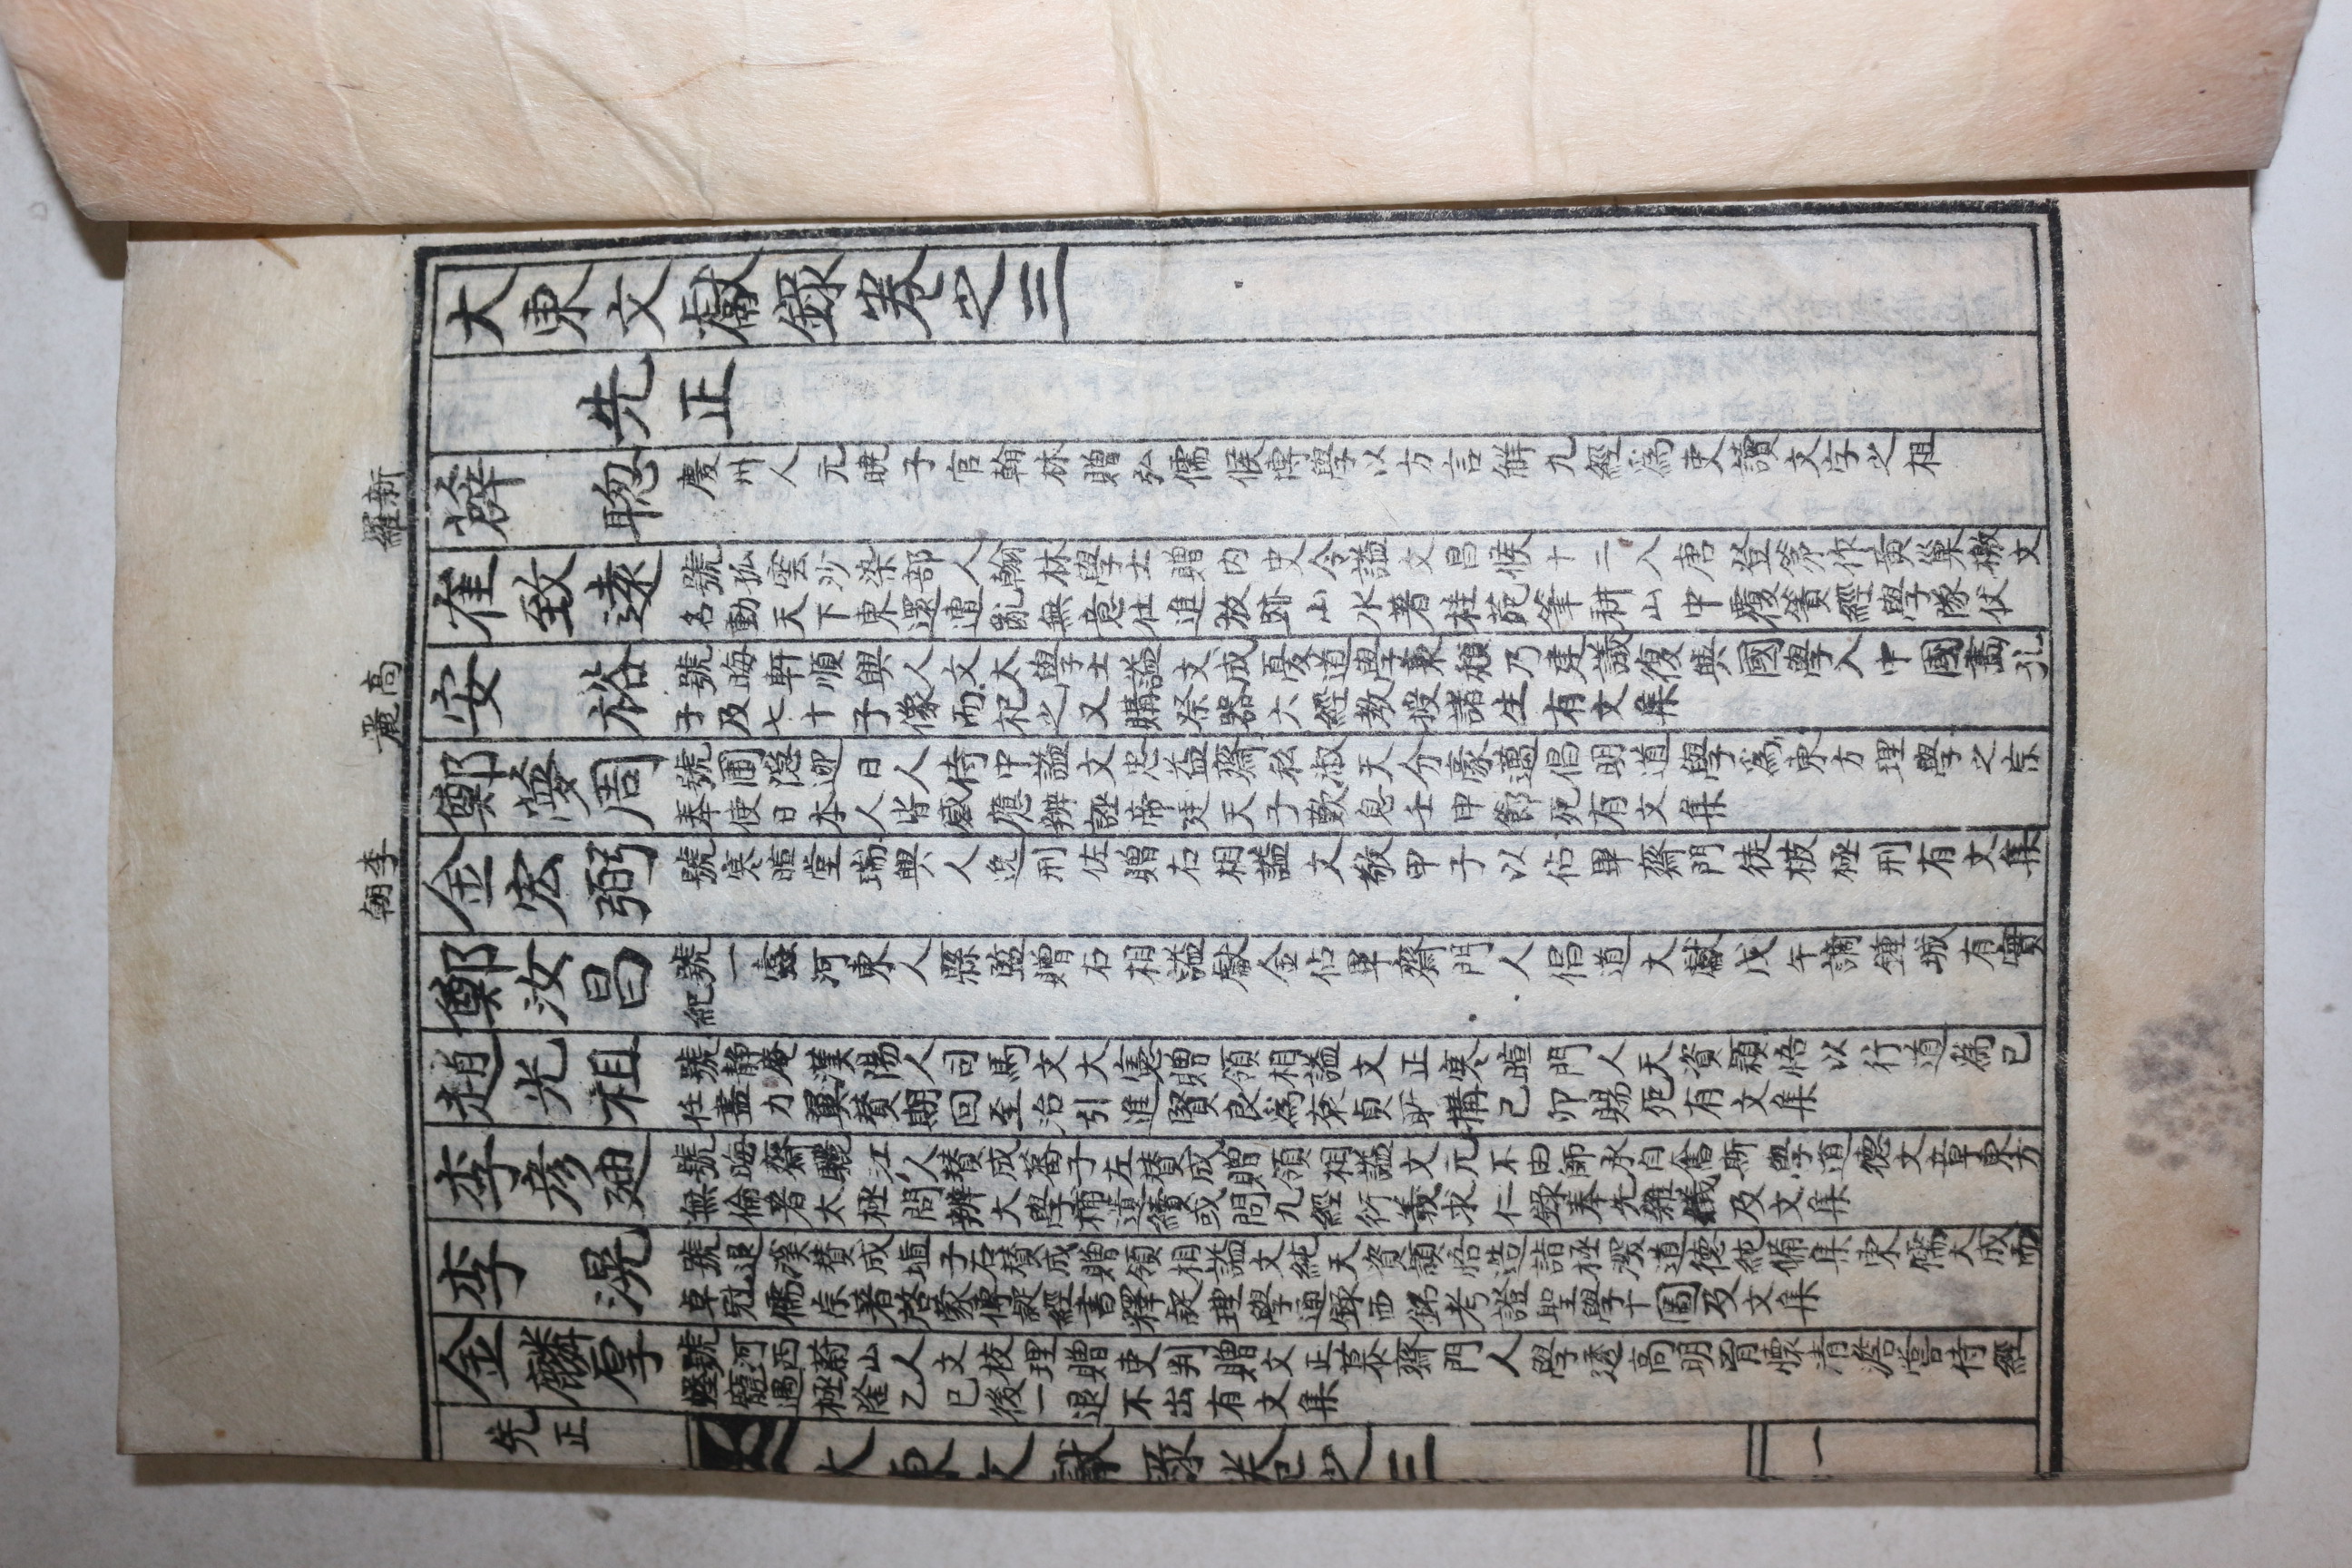 新羅
高麗
李朝
大東文獻錄卷之三
先正
薜聰 慶州人元曉子官翰林贈弘儒候博學以方言解九經爲吏讀文字之祖
崔致遠 號孤雲沙梁部人翰林學士贈內史令謚文昌候十二入唐登第作黃巢檄文
名動天下東還遭亂無意仕進放跡山水著桂苑筆耕山中覆簣經學隊仗
安裕 號晦軒順興人文太學士謚文成憂道學衰頹乃建議復興國學入中國畵孔
子及七十子像而祀之又購祭器六經敎授諸生有文集
鄭夢周 號圃隱迎日人侍中謚文忠益齋私淑天分豪邁倡明道學爲東方理學之宗
奉使日本人皆感應辨誣帝廷天子歎息壬申節死有文集
金宏弼 號寒暄堂瑞興人逸刑佐贈右相謚文敬甲子以佔畢齋門徒被極刑有文集
鄭汝昌 號一蠹河東人縣監贈右相謚獻金佔畢齋門人倡道文獻戊午謫鍾城有實
紀
趙光祖 號静庵漢陽人司馬文大憲贈領相謚文正寒暄門人天資穎悟以行道爲已
任盡力翼賛期回至治引進賢良爲袞貞所搆己卯賜死有文集
李彦迪 號晦齋驪江人賛成蕃子左賛成贈領相謚文元不由師承自奮斯學道德文章東方
無倫著太極問辨大學補遺續或問九經衍義求仁錄奉先雜儀及文集
李滉 號退溪賛成埴子右賛成贈領相謚文純天資頴悟造詣極深道德純備集東儒大成而
卓冠儒宗著啓蒙傳疑經書釋疑理學通錄西銘考證聖學十圖及文集
金麟厚 號河西蔚山人文校理贈吏判贈文正慕齋門人學透高明胷懷清澹嘗侍經
筵寵遇極隆乙巳後一退不出有文集
先正
大東文獻錄卷之三
一